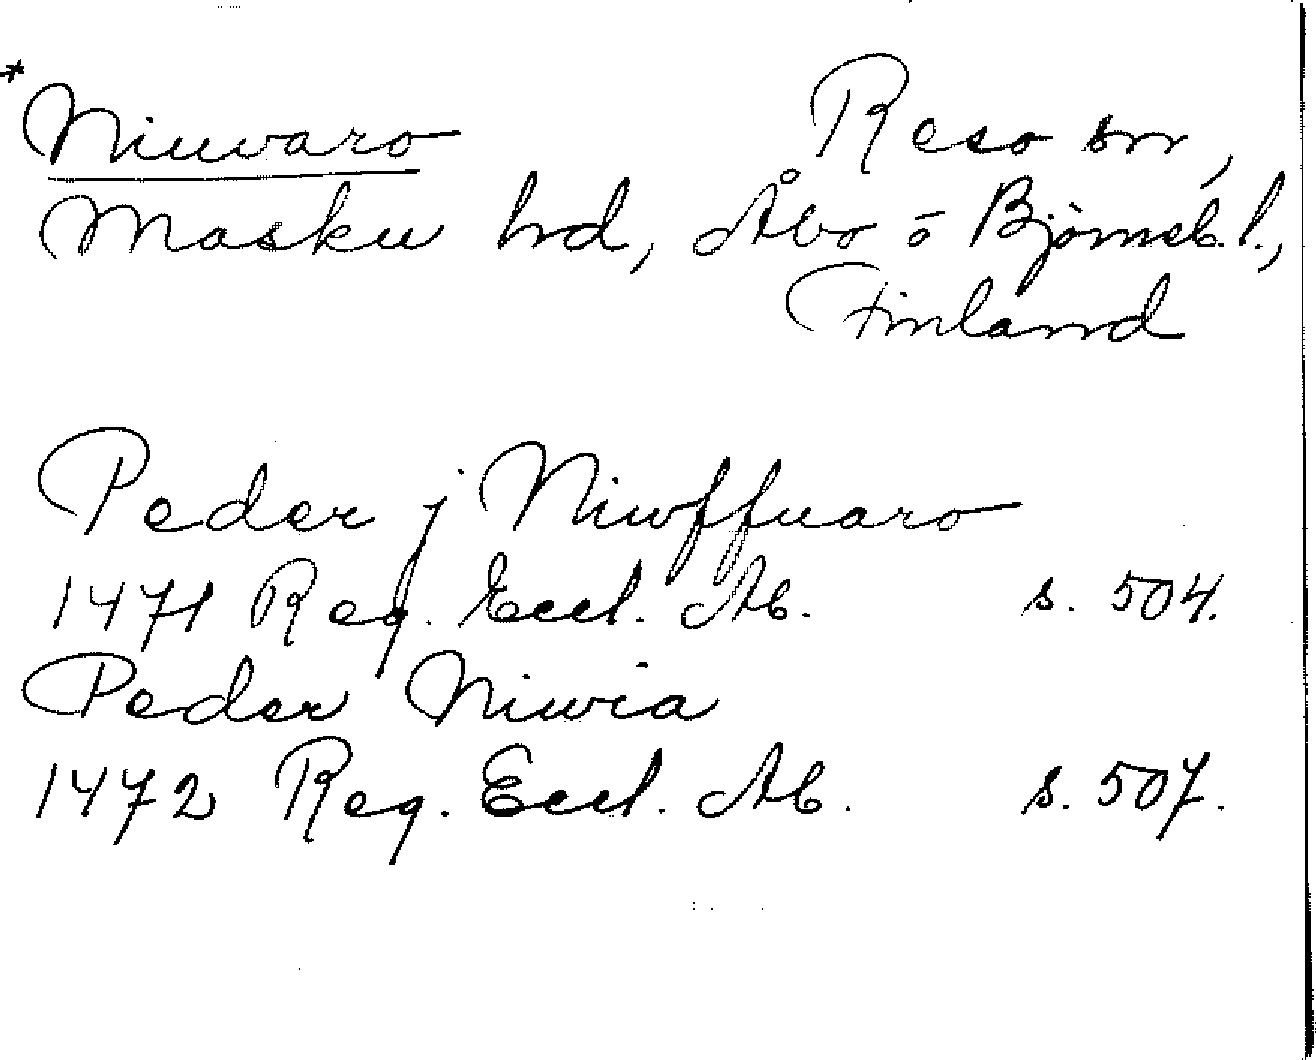 *Niuvaro Reso sn,
Masku hd, Åbo o Björneb. l.,
Finland
Peder j Niwffuaro
1471 Reg. Eccl. Ab. s. 504.
Peder Niwia
1472 Reg. Eccl. Ab. s. 507.